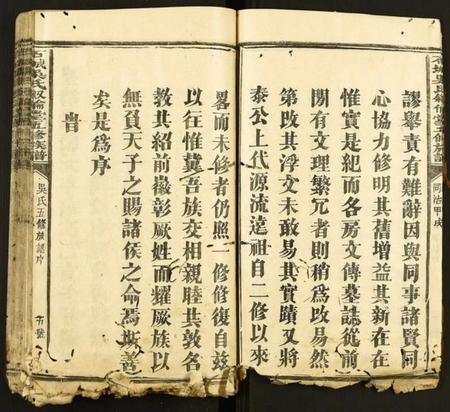 謬舉責有難辭因與同事諸賢同
心協力修明其舊增益其新在在
惟實是紀而各房文傳墓誌從前
間有文理繁冗者則稍為改易然
第改其浮文未敢易其實蹟又將
泰公上代源流遠祖自二修以來
畧而未修者仍照一修修復自茲
以往惟冀吾族交相親睦共敦名
教其紹前徽彰厥姓而耀厥族以
無負天子之賜諸侯之命焉斯善
矣是為序
旹
石城吳氏敘倫堂五修族譜
同治甲戌
石城吳氏敘倫堂五修族譜
吳氏五修族譜片